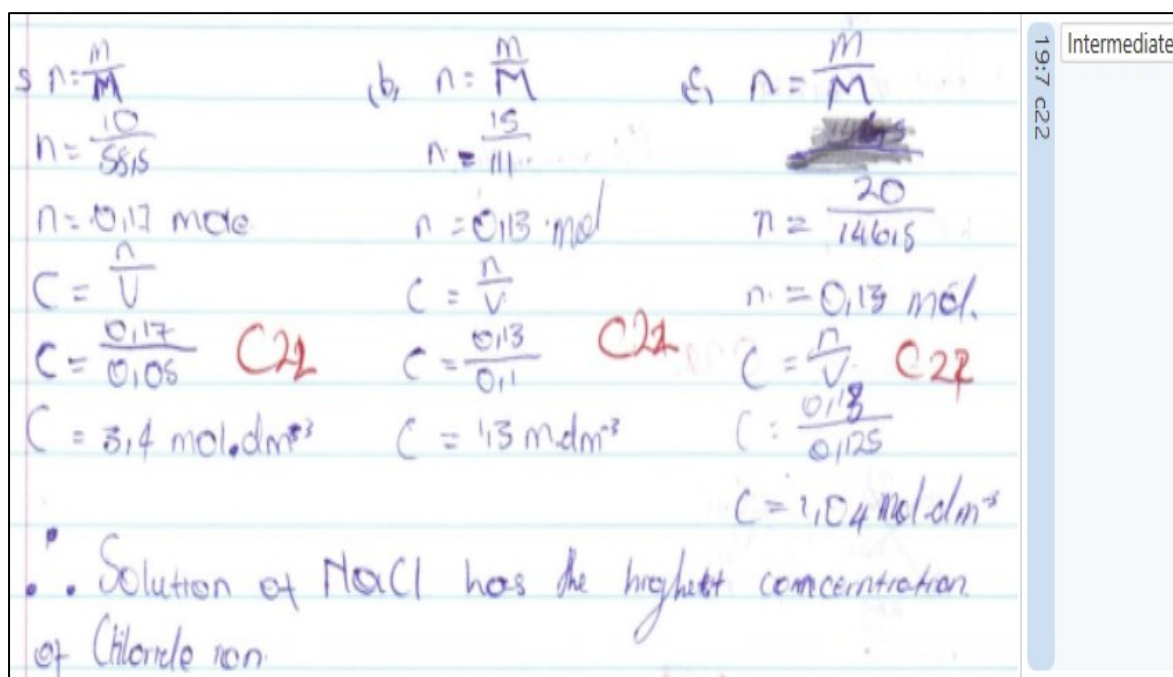 n = m/M
n = 10/58,5
n = 0,17 mole
C = n/V
C = 0,17/0,05
C = 3,4 mol.dm-3
(b) n = m/M
n = 15/111
n = 0,13 mol
C = n/V
C = 0,13/0,1
C = 1,3 m.dm-3
c, n = m/M
n = 20/146,5
n = 0,13 mol.
C = n/V
C = 0,13/0,125
C = 1,04 mol.dm-3
C22
∴ Solution of NaCl has the highest comcerntration
of Chloride ion
19:7 c22
Intermediate